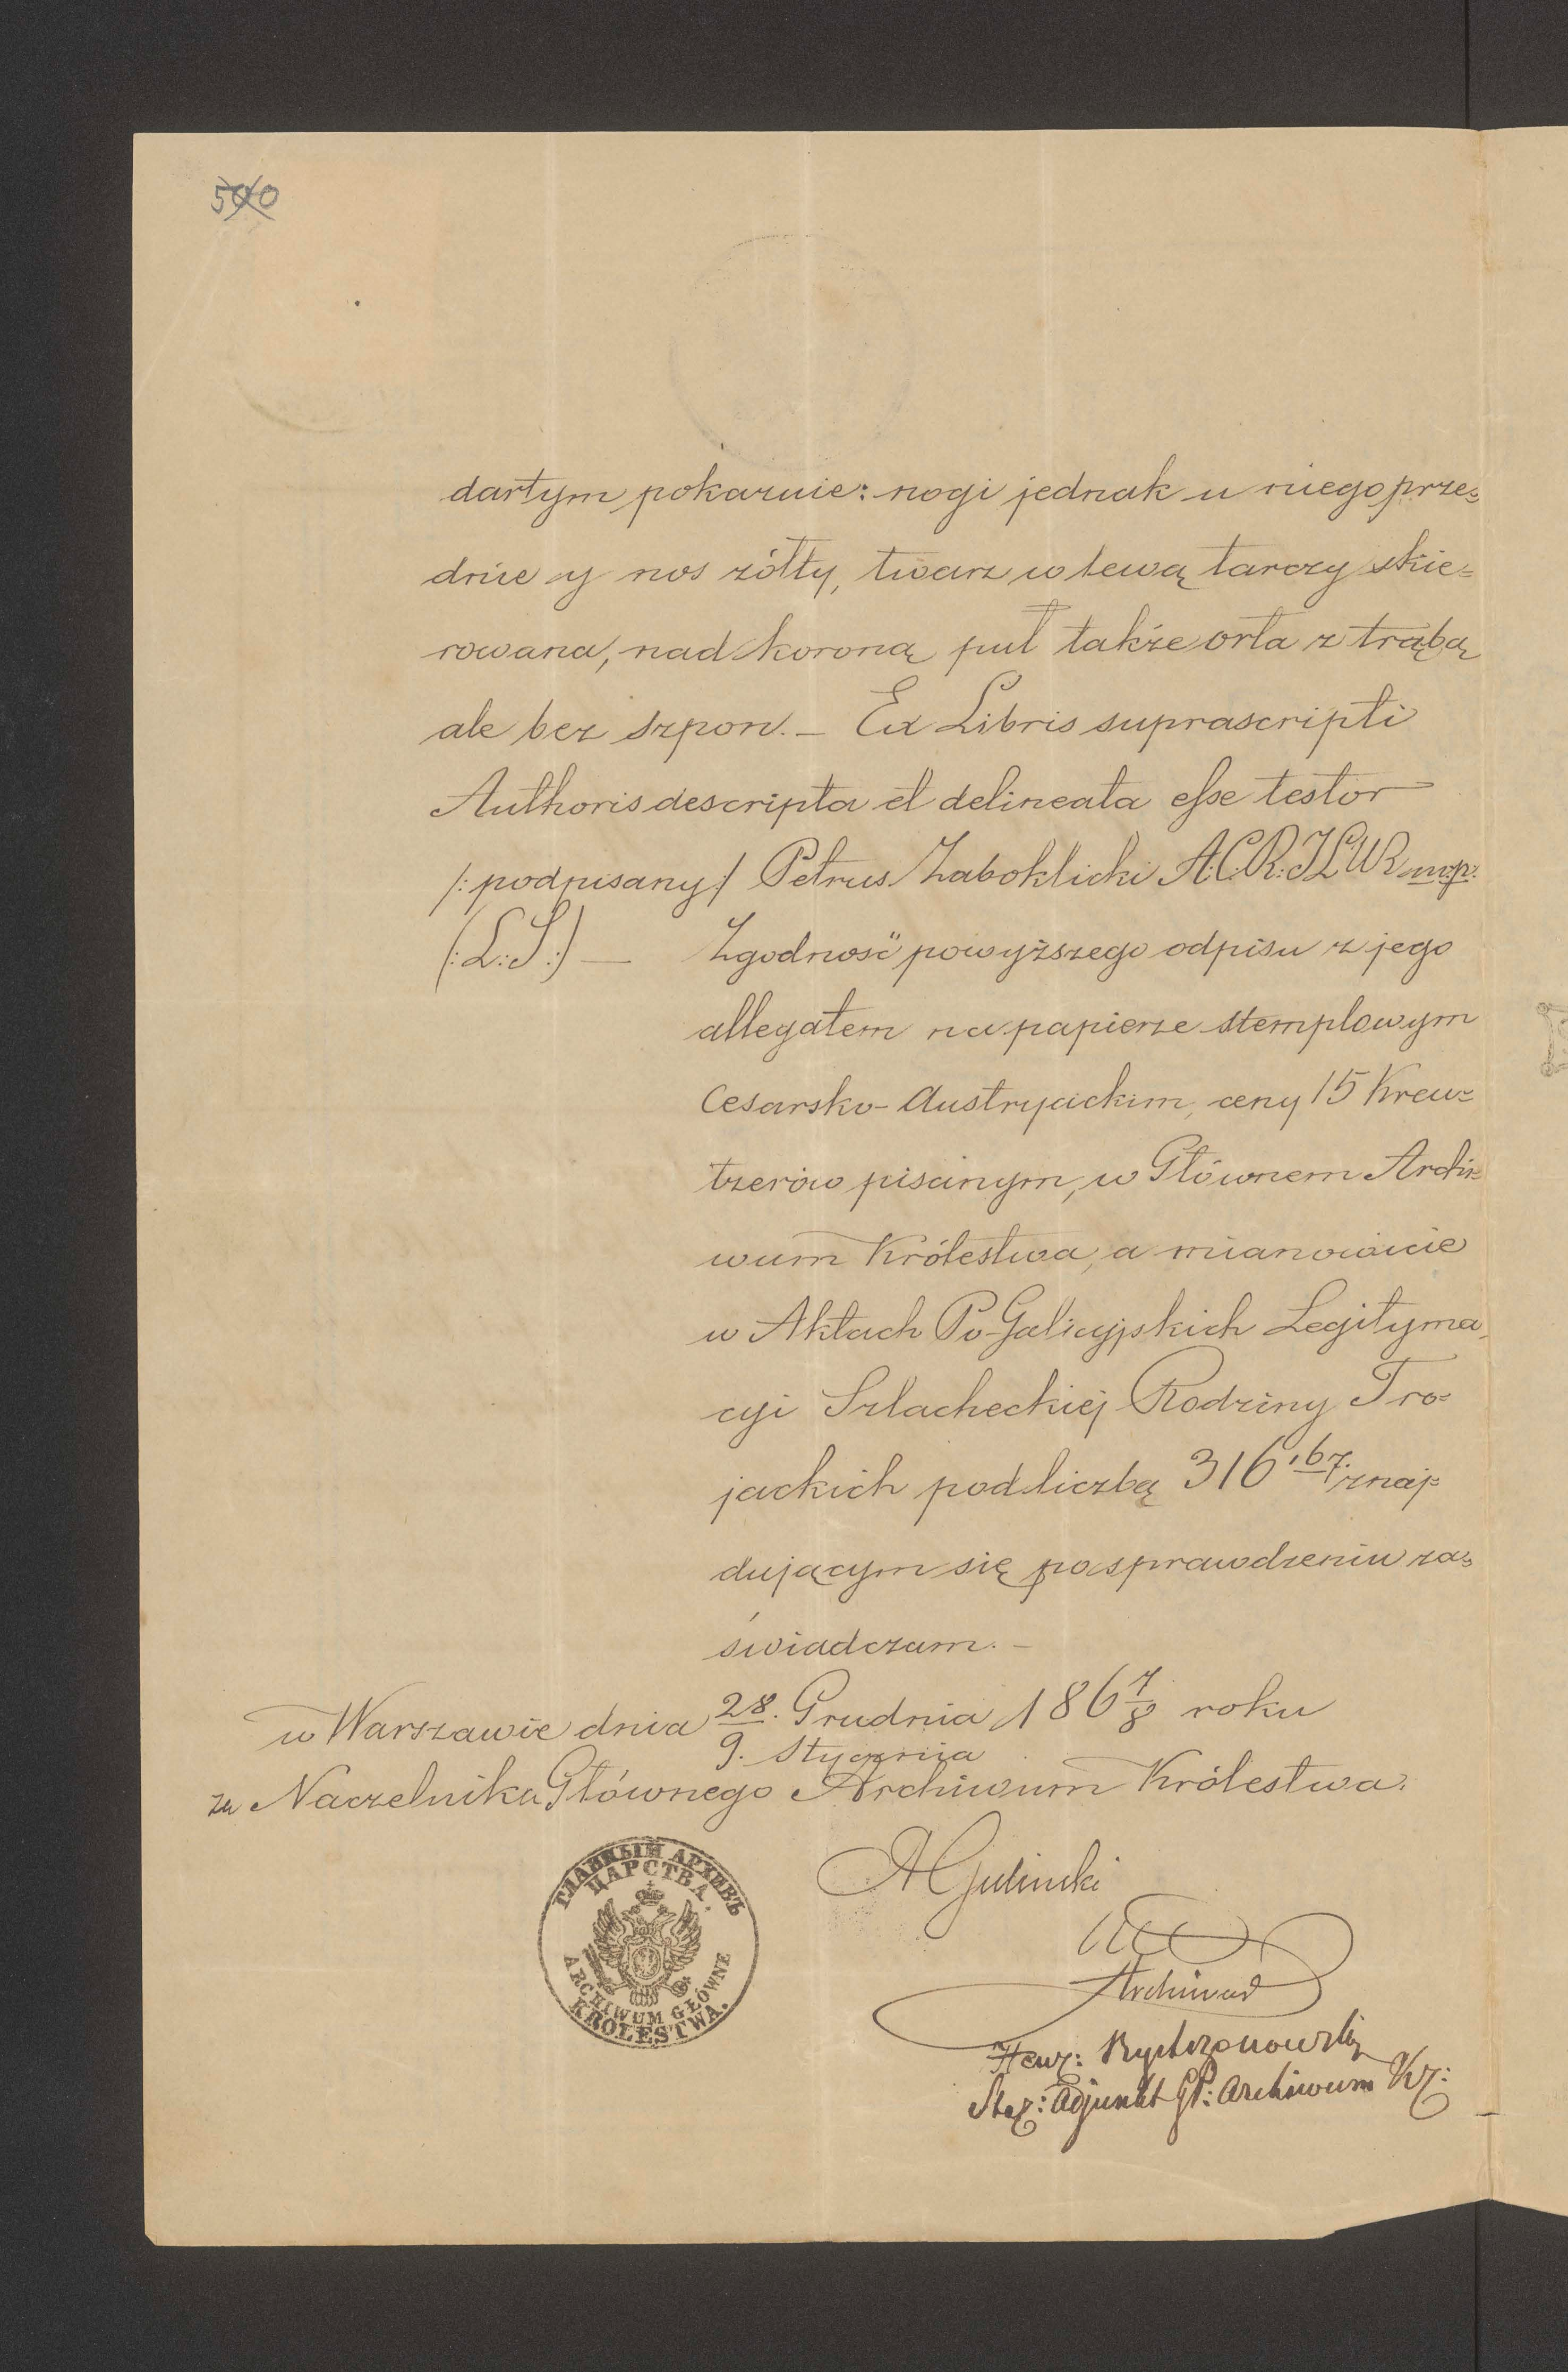 500
dartym pokaznie: nogi jednak u niego prze=
dnie y nos żółty, twarz w lewą tarczy skie=
rowana, nad koroną puł także orła z trąbą
ale bez szpon. – Ex Libris suprascripti
Authoris descripta et delineata esse testor
/: podpisany :/ Petrus Zaboklicki A.C.R.
(:L.S:) – Zgodność powyższego odpisu z jego
allegatem na papierze stemplowym
Cesarsko-Austryackim, ceny 15 Kreu=
tzerów pisanym, w Głównem Archi=
wum Królestwa, a mianowicie
w Aktach Po-Galicyjskich Legityma=
cyi Szlacheckiej Rodziny Tro=
jackich pod liczbą 316 znaj=
dującym się po sprawdzeniu za=
świadczam. –
w Warszawie dnia 28. Grudnia 1867/8 roku
9. Stycznia
za Naczelnika Głównego Archiwum Królestwa.
ГЛАВНЫЙ АРХИВЪ
ЦАРСТВА.
ARCHIWUM GŁÓWNE
KRÓLESTWA.
Archiwum
Adjunkt Gł: Archiwum Kr: